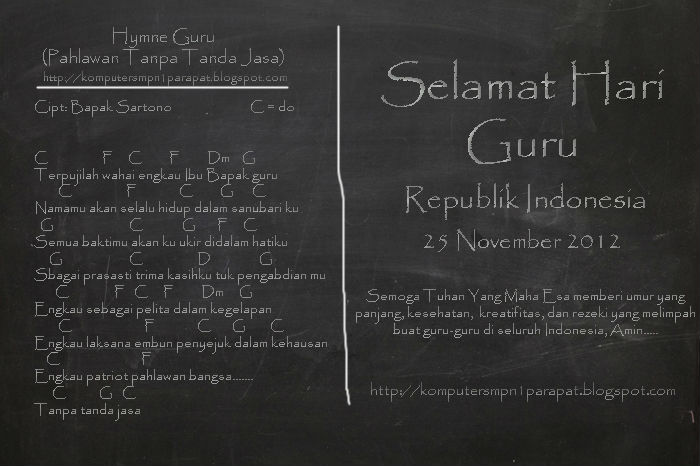 Hymne Guru
(Pahlawan Tanpa Tanda Jasa)
http://komputersmpn1parapat.blogspot.com
Cipt: Bapak Sartono C = do
C F C F Dm G
Terpujilah wahai engkau Ibu Bapak guru
C F C G C
Namamu akan selalu hidup dalam sanubari ku
G C G F C
Semua baktimu akan ku ukir didalam hatiku
G C D G
Sbagai prasasti trima kasihku tuk pengabdian mu
C F C F Dm G
Engkau sebagai pelita dalam kegelapan
C F C G C
Engkau laksana embun penyejuk dalam kehausan
C F
Engkau patriot pahlawan bangsa.......
C G C
Tanpa tanda jasa
Selamat Hari
Guru
Republik Indonesia
25 November 2012
Semoga Tuhan Yang Maha Esa memberi umur yang
panjang, kesehatan, kreatifitas, dan rezeki yang melimpah
buat guru-guru di seluruh Indonesia, Amin.....
http://komputersmpn1parapat.blogspot.com